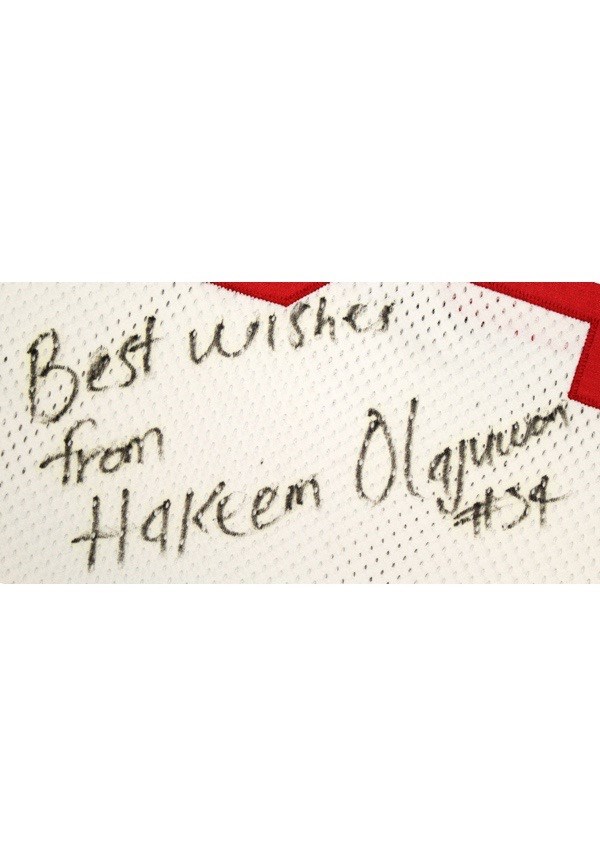 Best wishes
from
Hakeem Olajuwon
#34